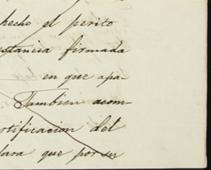 hecho el perito
stancia firmada
en que apa-
Tambien acom-
rtificacion del
lara que por su